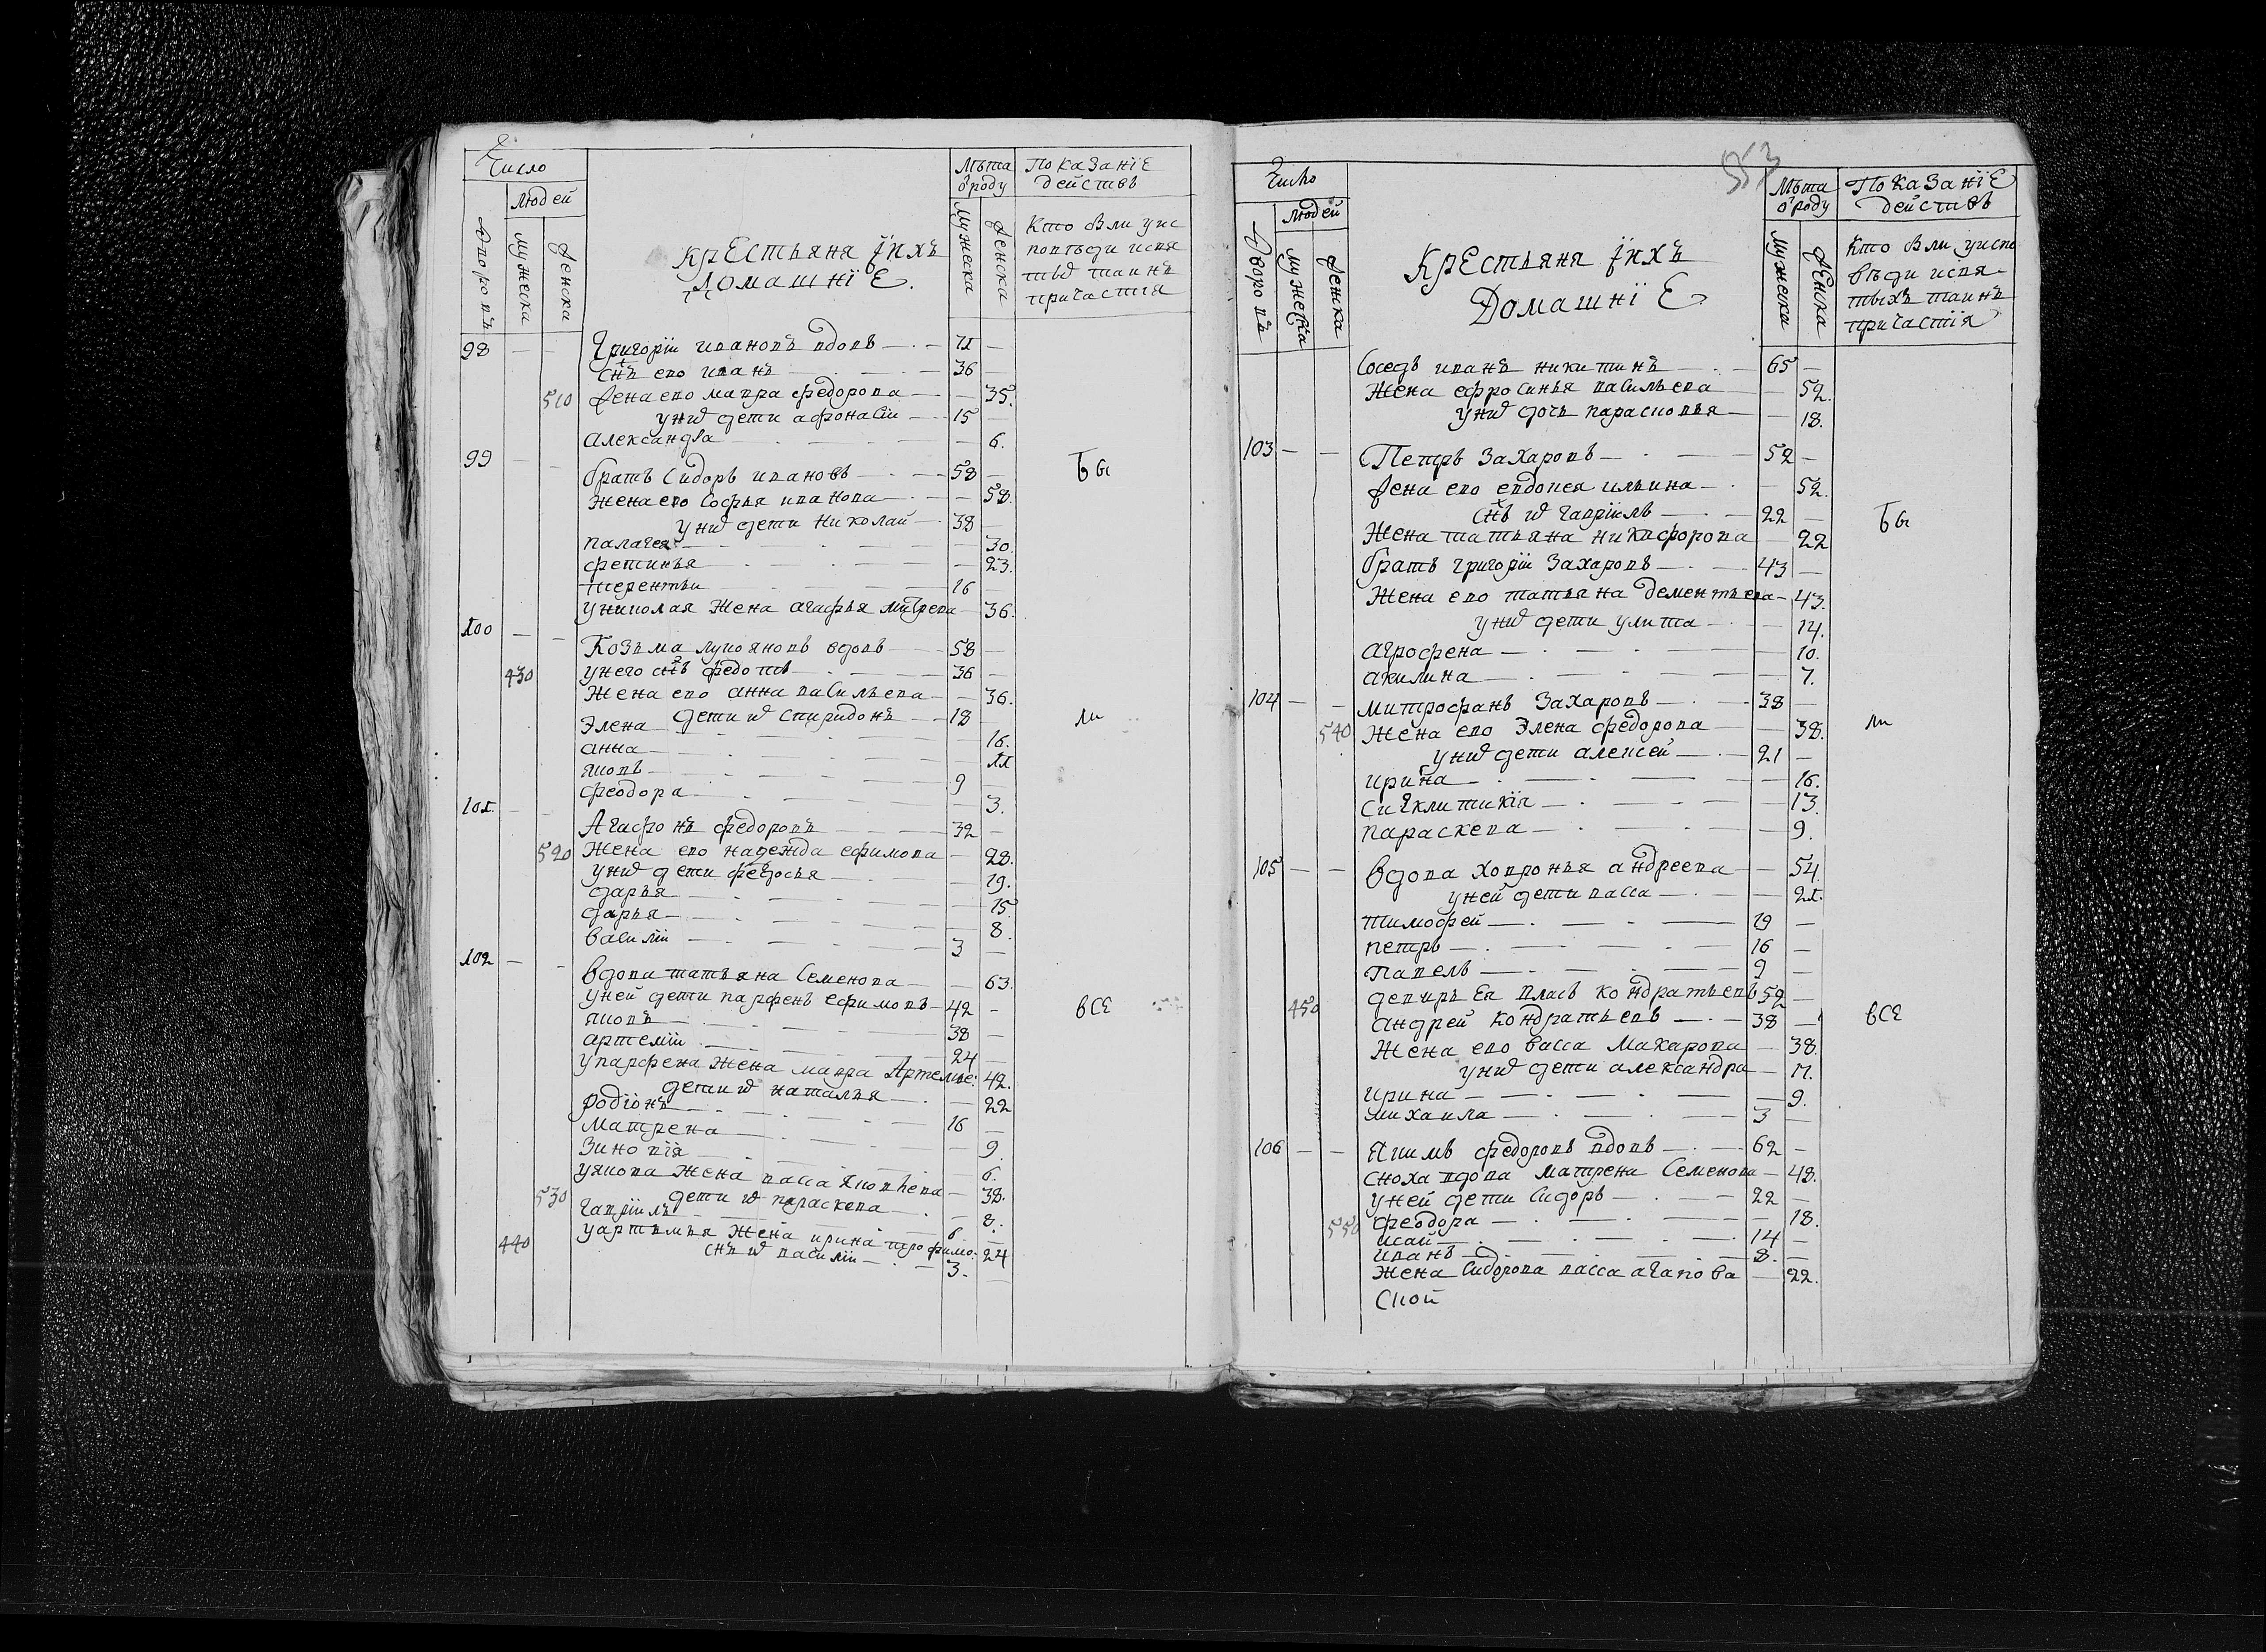 Число
Людей
Дворовъ
Мужеска
Женска
Крестьяня їихъ
Домашнїе
Лѣта
ѿроду
Мужеска
Женска
Показанїе
действъ
Кто были уис
повѣди исвя
тыѿ таинъ
причастїя
98 — — Григорїи ивановъ вдовъ — 71 —
снъ ево иванъ — 36 —
510 Жена ево мавра федорова — — 35.
униѿ дети афонасїи — 15 —
Александра — — 6.
99 — — братъ Сидоръ ивановъ — 58 —
Жена ево Софья иванова — — 58.
униѿ дети Николай — 38 —
палагея — — 30.
фетинья — — 23.
терентьи — 16 —
униколая Жена агафья митрева — 36.
Бы
100 — — Козьма лукояновъ вдовъ — 58 —
430 унего снъ федотъ — 36 —
Жена ево анна васильева — — 36.
дети ѿ спиридонъ — 18 —
Элена — — 16.
анна — — 11
яковъ — 9 —
феодора — — 3.
ли
101 — — Агафонъ федоровъ — 32 —
520 Жена ево надежда ефимова — 28.
униѿ дети федосья — — 19.
дарья — — 15.
дарья — — 8.
василїи — 3 —
102 — — вдова татьяна Семенова — 63.
уней дети парфенъ ефимовъ — 42 —
яковъ — 38 —
артемїи — 24 —
упарфена Жена мавра Артемье: 42.
дети ѿ наталья — — 22
родїонъ — 16 —
матрена — — 9.
Зиновїя — — 6.
уякова Жена васса Яковлева — 38.
530 дети ѿ параскева — — 8.
гаврїилъ — 6 —
уартемья Жена ирина трофимо: 24
440 снъ ѿ василїи — 3. —
все
553
Число
Людей
Дворовъ
Мужеска
Женска
Крестьяня їихъ
Домашнїе
Лѣта
ѿроду
Мужеска
Женска
Показанїе
действъ
Кто были уиспо
вѣди исвя-
тыхъ таинъ
причастїя
Соседъ иванъ никитинъ — 65 —
Жена ефросинья васильева — — 52.
униѿ дочь парасковья — — 18.
103 — — Петръ Захаровъ — 52 —
Жена ево евдокея ильина — — 52.
снъ ѿ гаврїилъ — 22 —
Жена татьяна никифорова — 22
братъ григорїи Захаровъ — 43 —
Жена ево татьяна дементьева — 43.
униѿ дети улита — — 14.
агрофена — — 10.
акилина — — 7.
Бы
104 — — митрофанъ Захаровъ — 38 —
540 Жена ево Элена федорова — — 38.
униѿ дети алексей — 21 —
ирина — — 16.
Сигклитикїя — — 13.
параскева — — 9.
ли
105 — — вдова Ховронья андреева — 54.
уней дети васса — — 21.
тимофей — 19 —
петръ — 16 —
павелъ — 9 —
450 деверь Ея власъ кондратьевъ 52 —
андрей кондратьевъ — 38 —
Жена ево васса Макарова — 38.
униѿ дети александра — 11.
ирина — — 9.
михаила — 3 —
все
106 — — Якимъ федоровъ вдовъ — 62 —
сноха вдова матрена Семенова — 48.
уней дети Сидоръ — 22 —
550 феодора — — 18.
исай — 14 —
иванъ — 8. —
Жена Сидорова васса агапова — 22.
Скои